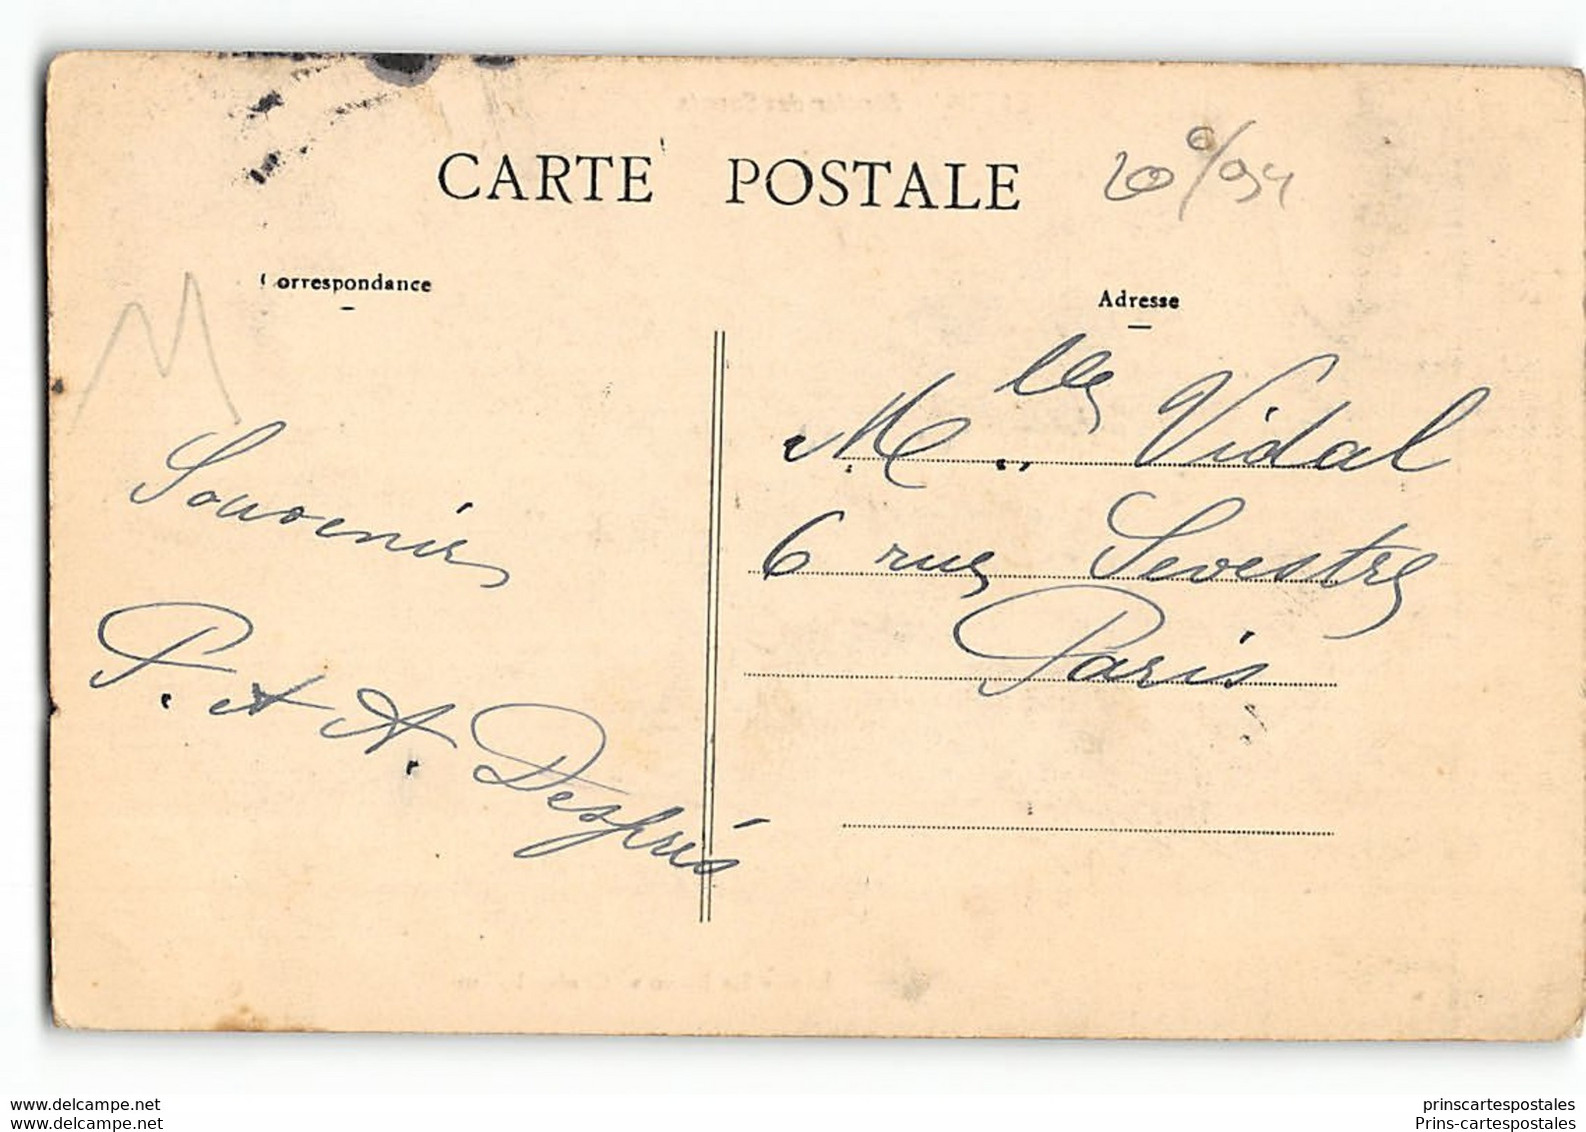 CARTE POSTALE
Correspondance
Adresse
M
Souvenir
P. et A. Desprès
Mlles Vidal
6 rue Sevestre
Paris
www.delcampe.net
www.delcampe.net
prinscartespostales
Prins-cartespostales